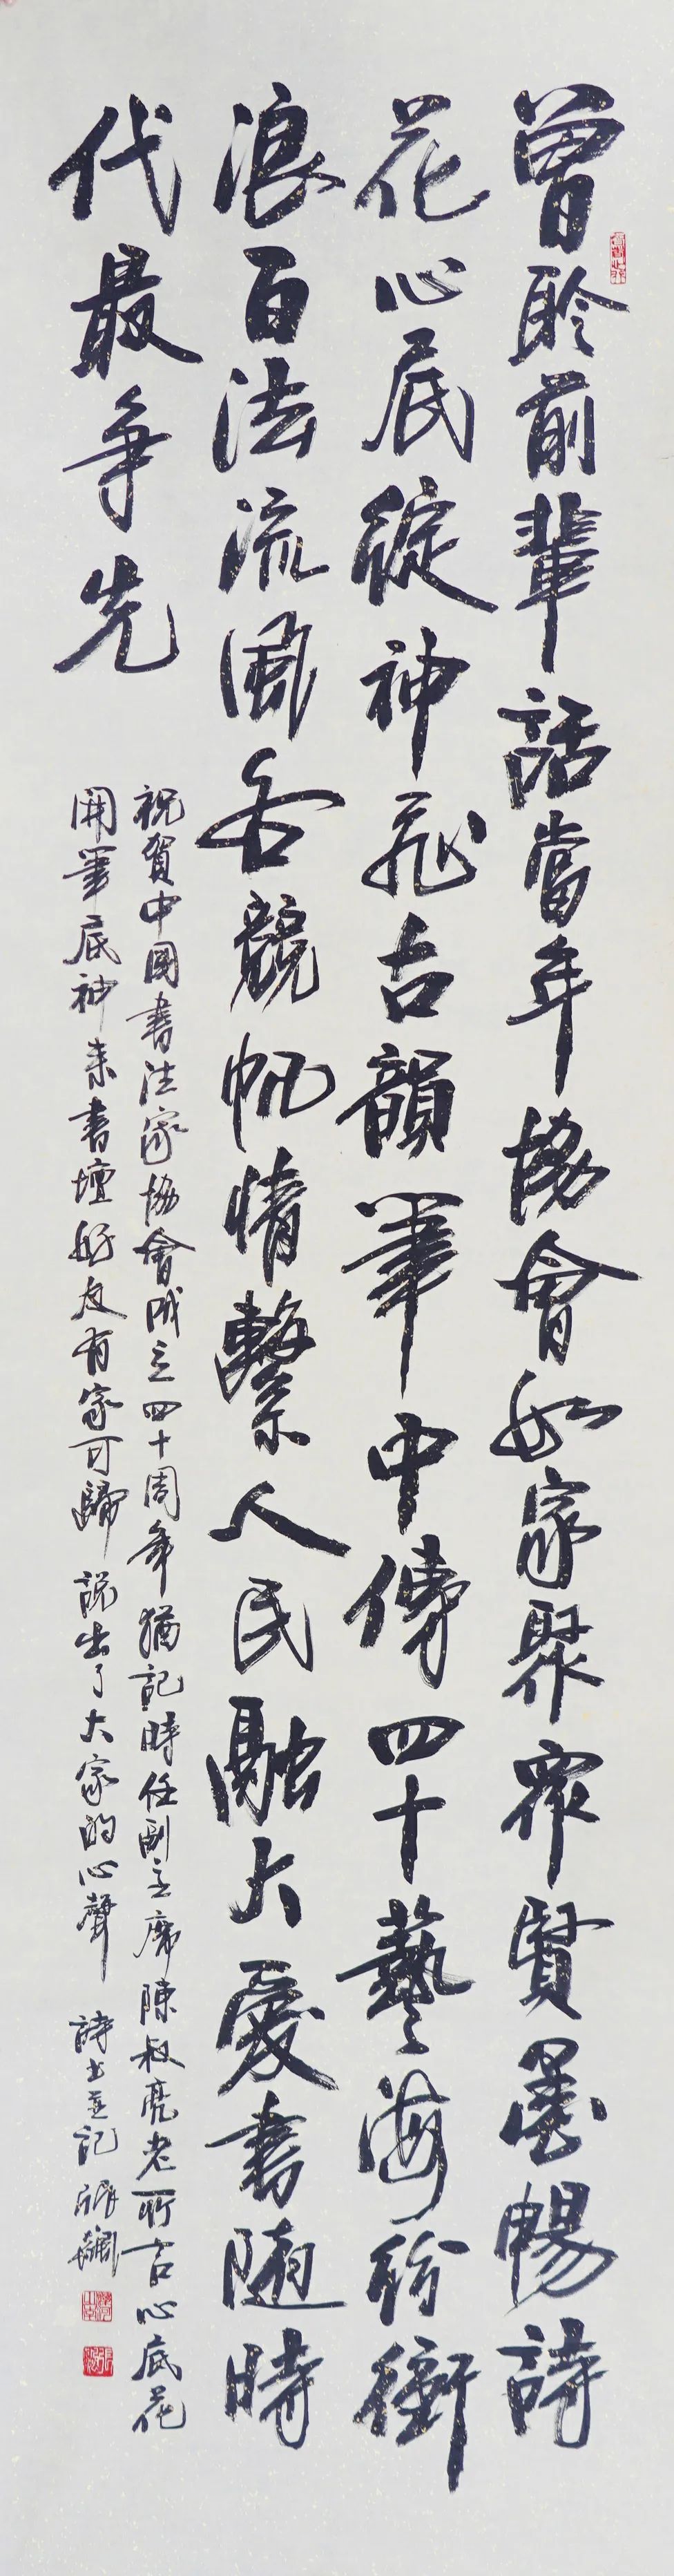 曾聆前輩話當年協會如家聚眾賢墨暢詩
花心底綻神飛古韻筆中傳四十藝海紛衝
浪百法流風各競帆情繫人民融大愛書隨時
代最争先
祝賀中國書法家協會成立四十周年猶記時任副主席陳叔亮老所言心底花
開筆底神来書壇好友有家可歸說出了大家的心聲 詩書並記